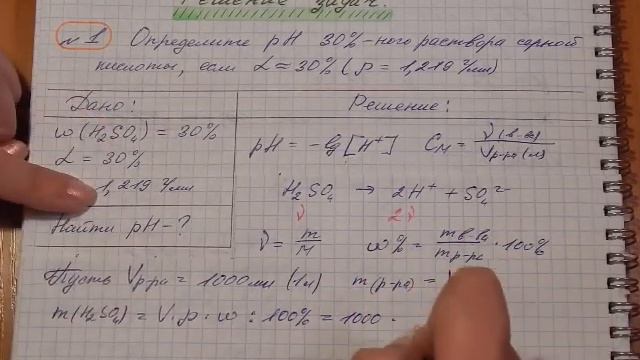 Решение задач.
№1 Определите pH 30%-ного раствора серной
кислоты, если α = 30% (ρ = 1,219 г/мл)
Дано:
w(H₂SO₄) = 30%
α = 30%
1,219 г/мл
Найти pH - ?
Решение:
pH = -lg[H⁺] Cм = ν(в-ва) / Vр-ра(л)
H₂SO₄ → 2H⁺ + SO₄²⁻
ν 2ν
ν = m/M w% = mв-ва / mр-ра · 100%
Пусть Vр-ра = 1000мл (1л) m(р-ра) =
m(H₂SO₄) = V·ρ·w : 100% = 1000 ·